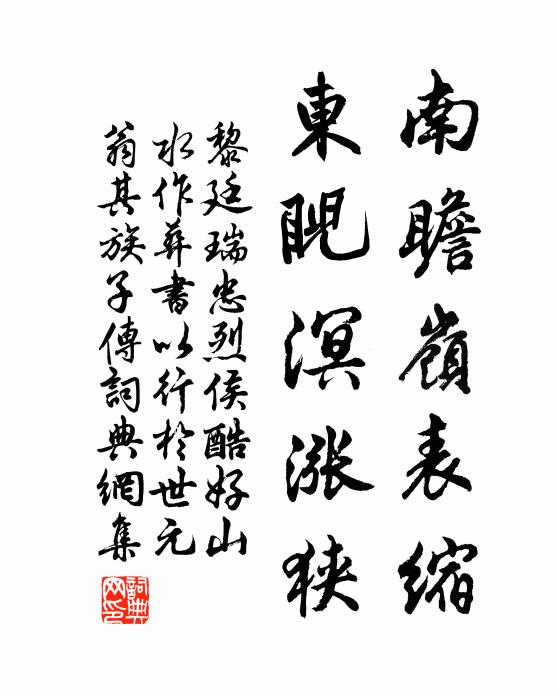 南瞻嶺表縮
東睨溟漲狹
黎廷瑞忠烈侯酷好山
水作葬書以行於世元
翁其族子傳詞典網集
詞典